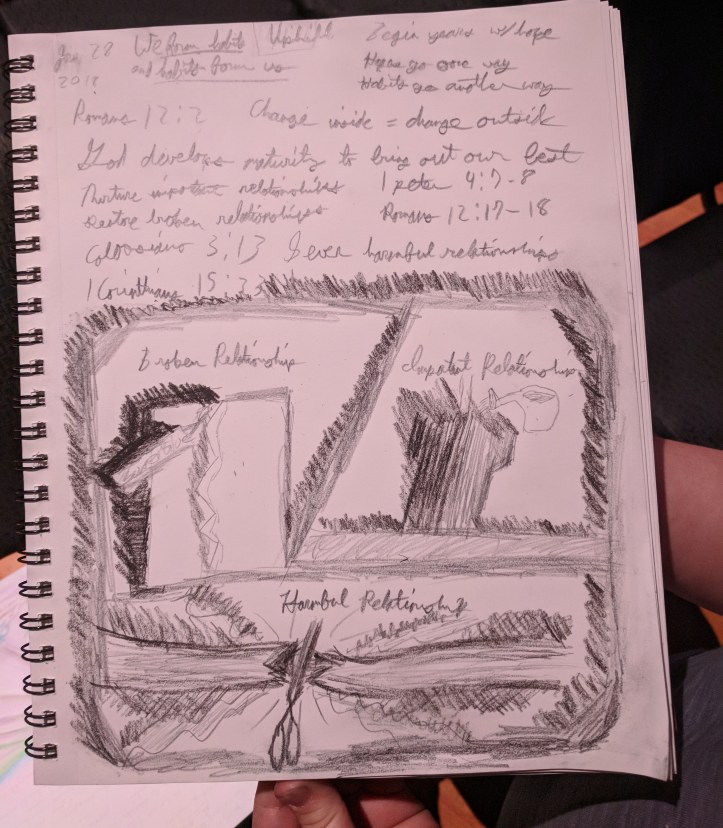 Jan 28 We form habits Uphill
2018 and habits form us
Begin years w/ hope
Hopes go one way
Habits go another way
Romans 12:2 Change inside = change outside
God develops maturity to bring out our best
Nurture important relationships 1 peter 4:7-8
Restore broken relationships Romans 12:17-18
Colossians 3:13 Sever harmful relationships
1 Corinthians 15:33
Broken Relationship
Important Relationships
Harmful Relationship